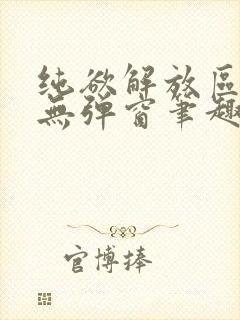 纯欲解放区
無弹窗筆趣
官博捧